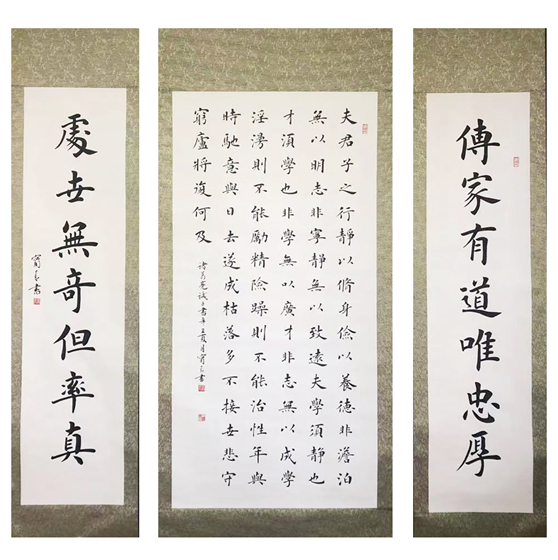 傳家有道唯忠厚
夫君子之行靜以脩身儉以養德非澹泊
無以明志非寧靜無以致遠夫學須靜也
才須學也非學無以廣才非志無以成學
淫漫則不能勵精險躁則不能治性年與
時馳意與日去遂成枯落多不接世悲守
窮廬將復何及
諸葛亮誡子書
處世無奇但率真